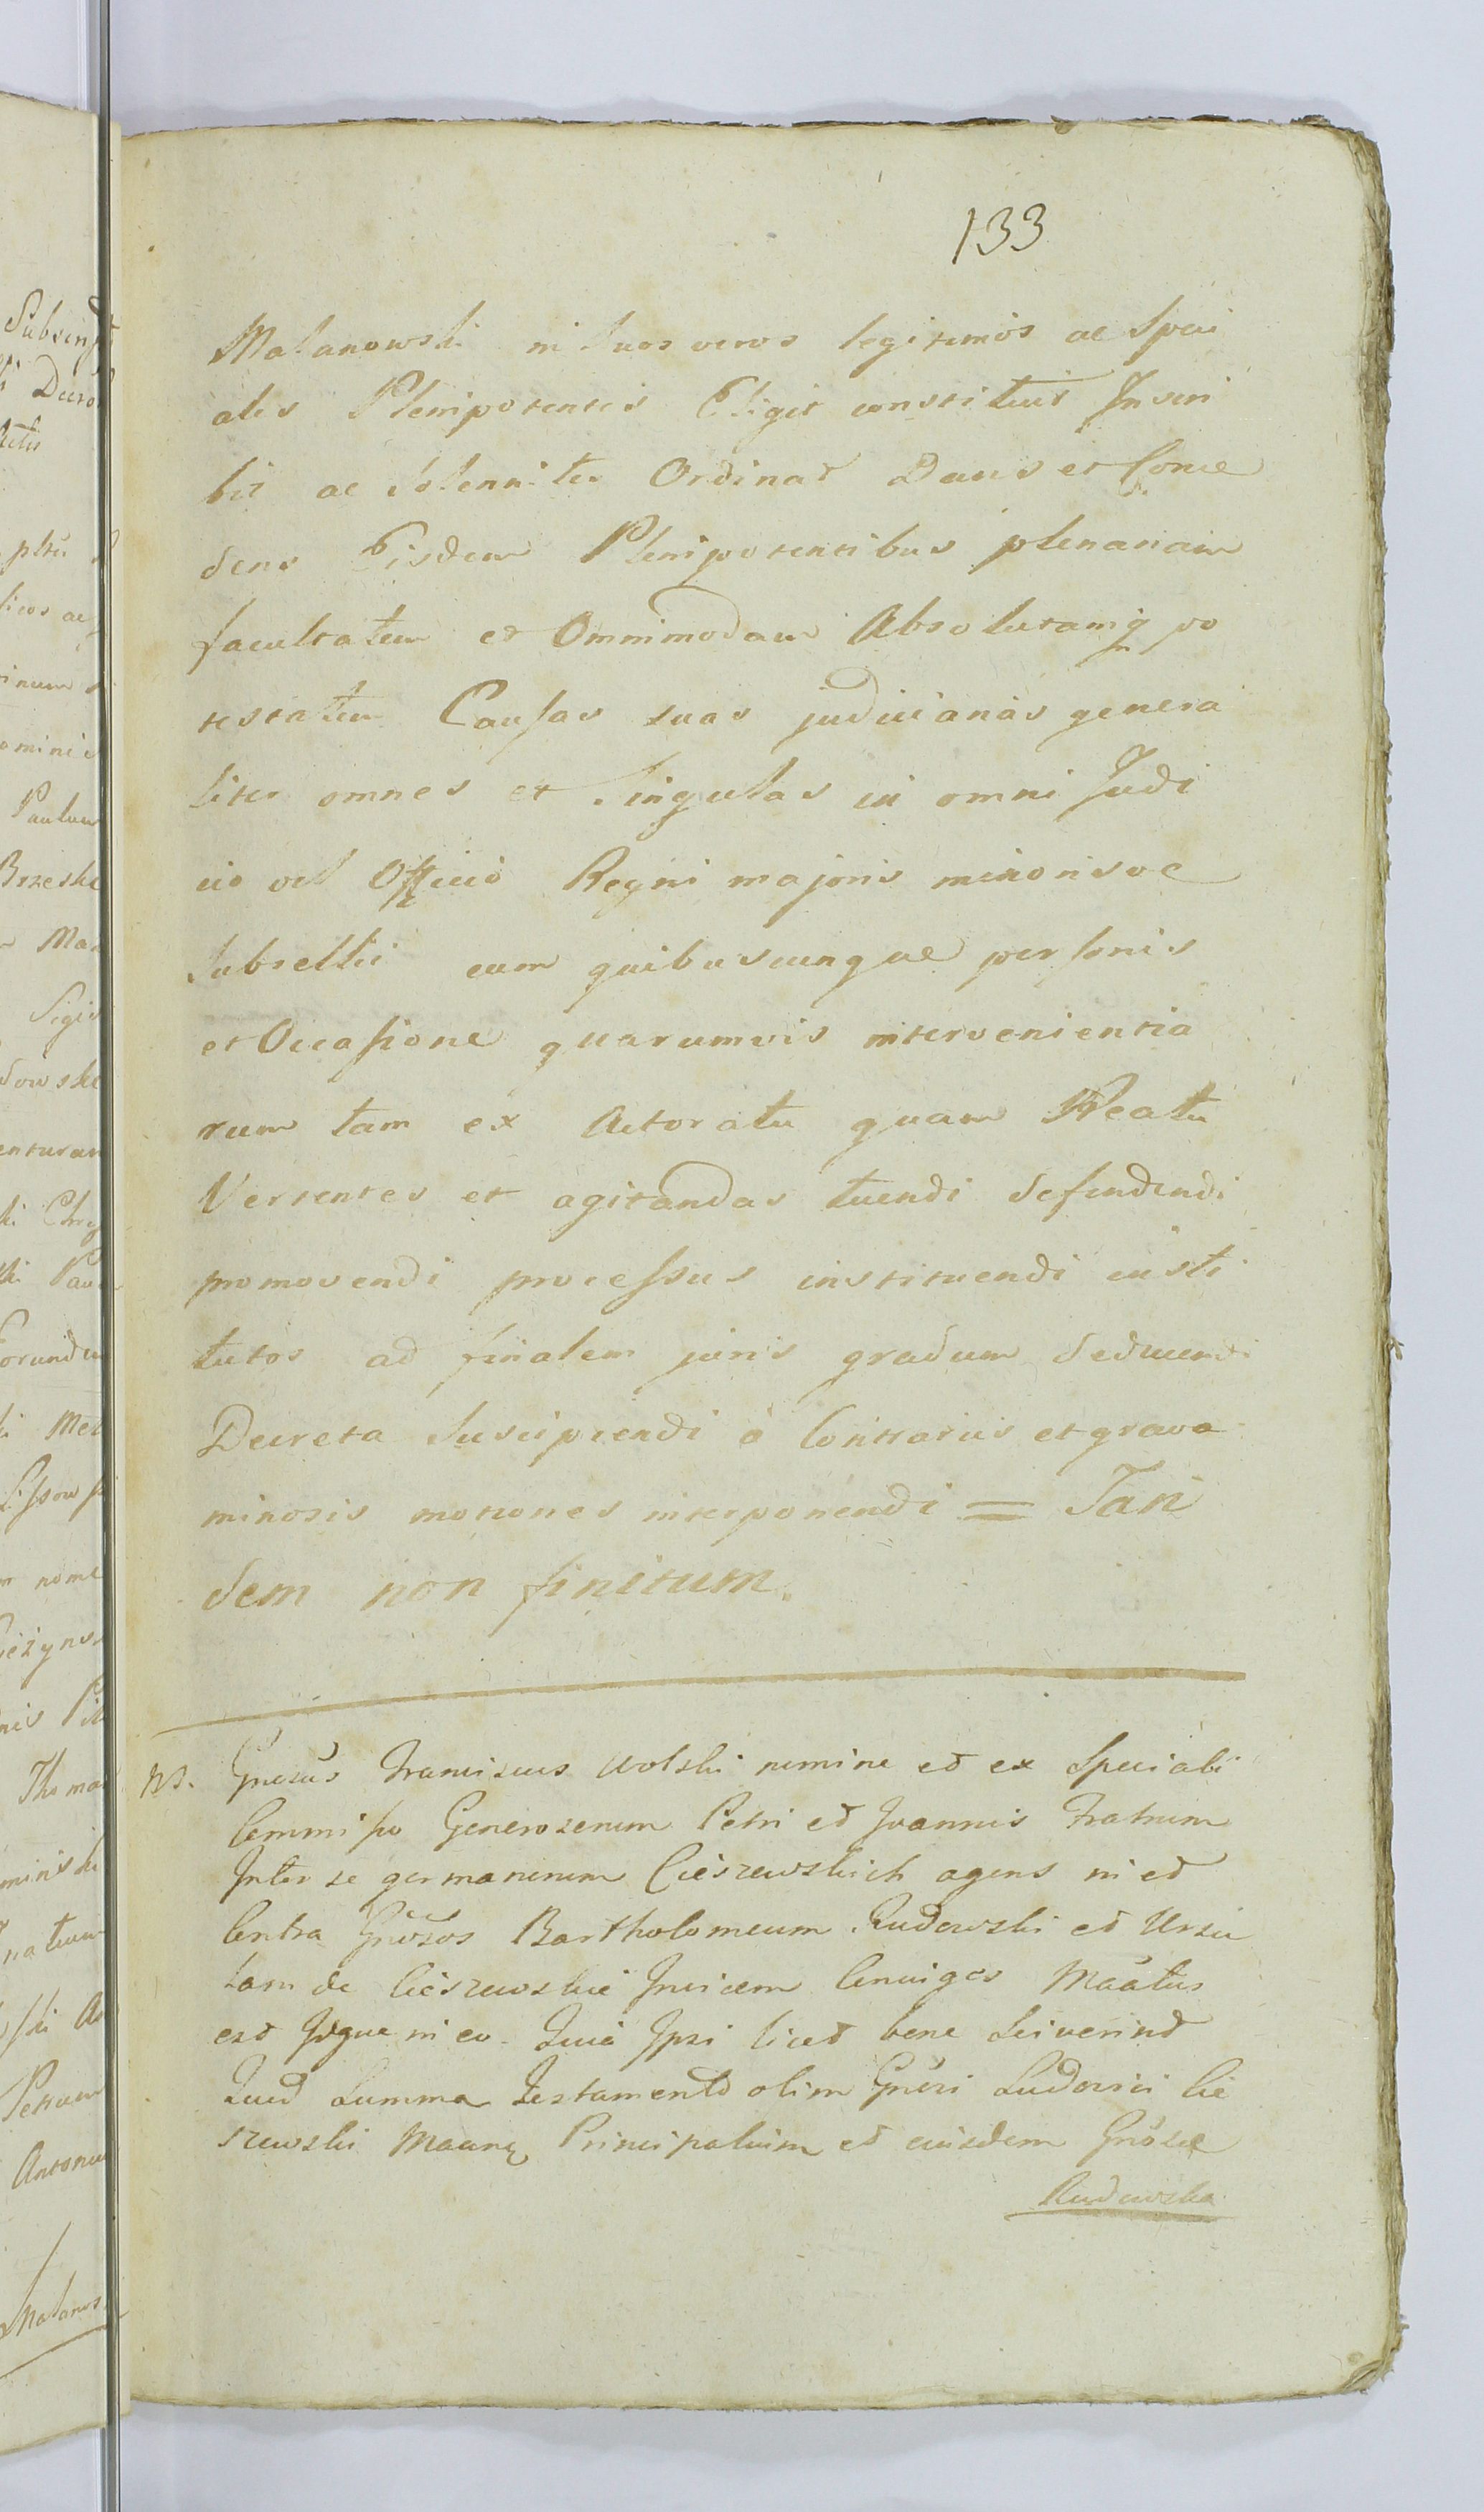 133
Malanowski in Suos veros legitimos ac Speci
ales Plenipotentes Eligit constituit Inscri
bit ac Solenniter Ordinat Dans et Conce
dens Eisdem Plenipotentibus plenariam
facultatem et Omnimodam Absolutamq po
testatem Causas suas judiciarias genera
liter omnes et Singulas in omni Judi
cio vel Officio Regni majoris minorisve
Subsellii cum quibuscunque personis
et Occasione quarumvis intervenientia
rum tam ex Actoratu quam Reatu
Vertentes et agitandas tuendi defendendi
promovendi processus instituendi insti
tutos ad finalem juris gradum deducendi
Decreta Suscipiendi à Contrariis et grava
minosis motiones interponendi = Tan
dem non finitum.
Gnosus Franciscus Wolski nomine et ex Speciali
Commisso Generosorum Petri et Joannis Fratrum
Inter se germanorum Cieszewskich agens in et
Contra Gnosos Bartholomeum Rudowski et Ursu
lam de Cieszewskie Invicem Conjuges Maatus
est Idque in eo. Quia Ipsi licet bene Sciverint
Quod Summa Testamento olim Gnosi Ludovici Cie
szewski Principalium et ejusdem Gnosae
Rudowska